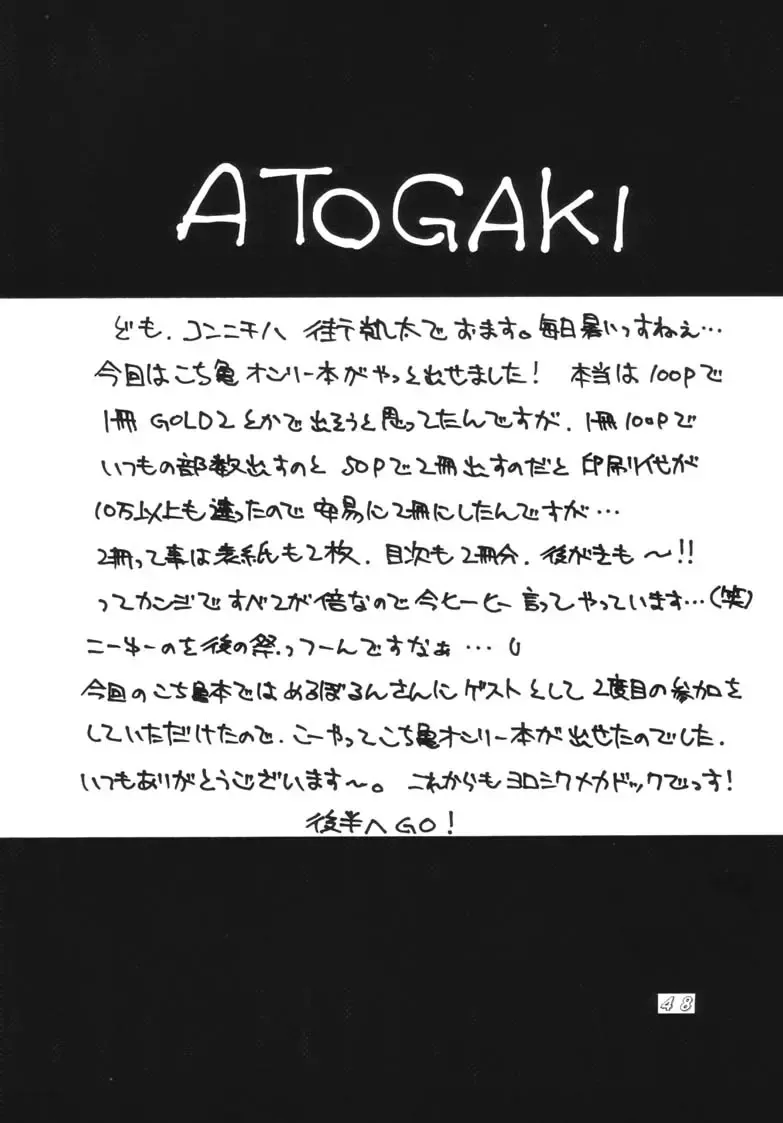 ATOGAKI
ども、コンニチハ 街亭凱太でおます。毎日暑いっすねえ…
今回はこち亀オンリー本がやっと出せました! 本当は100Pで
1冊 GOLD2とかで出そうと思ってたんですが、1冊100Pで
いつもの部数出すのと 50Pで2冊出すのだと 印刷代が
10万以上も違ったので 安易に2冊にしたんですが…
2冊って事は表紙も2枚、目次も2冊分、後がきも〜!!
ってカンジですべてが倍なので今ヒーヒー言ってやっています…(笑)
こーゆーのを後の祭っつーんですなぁ…
今回のこち亀本ではめるぼるんさんにゲストとして2度目の参加を
していただけたので、こーやってこち亀オンリー本が出せたのでした、
いつもありがとうございます〜。 これからもヨロシクメカドックでっす!
後半へGO!
48